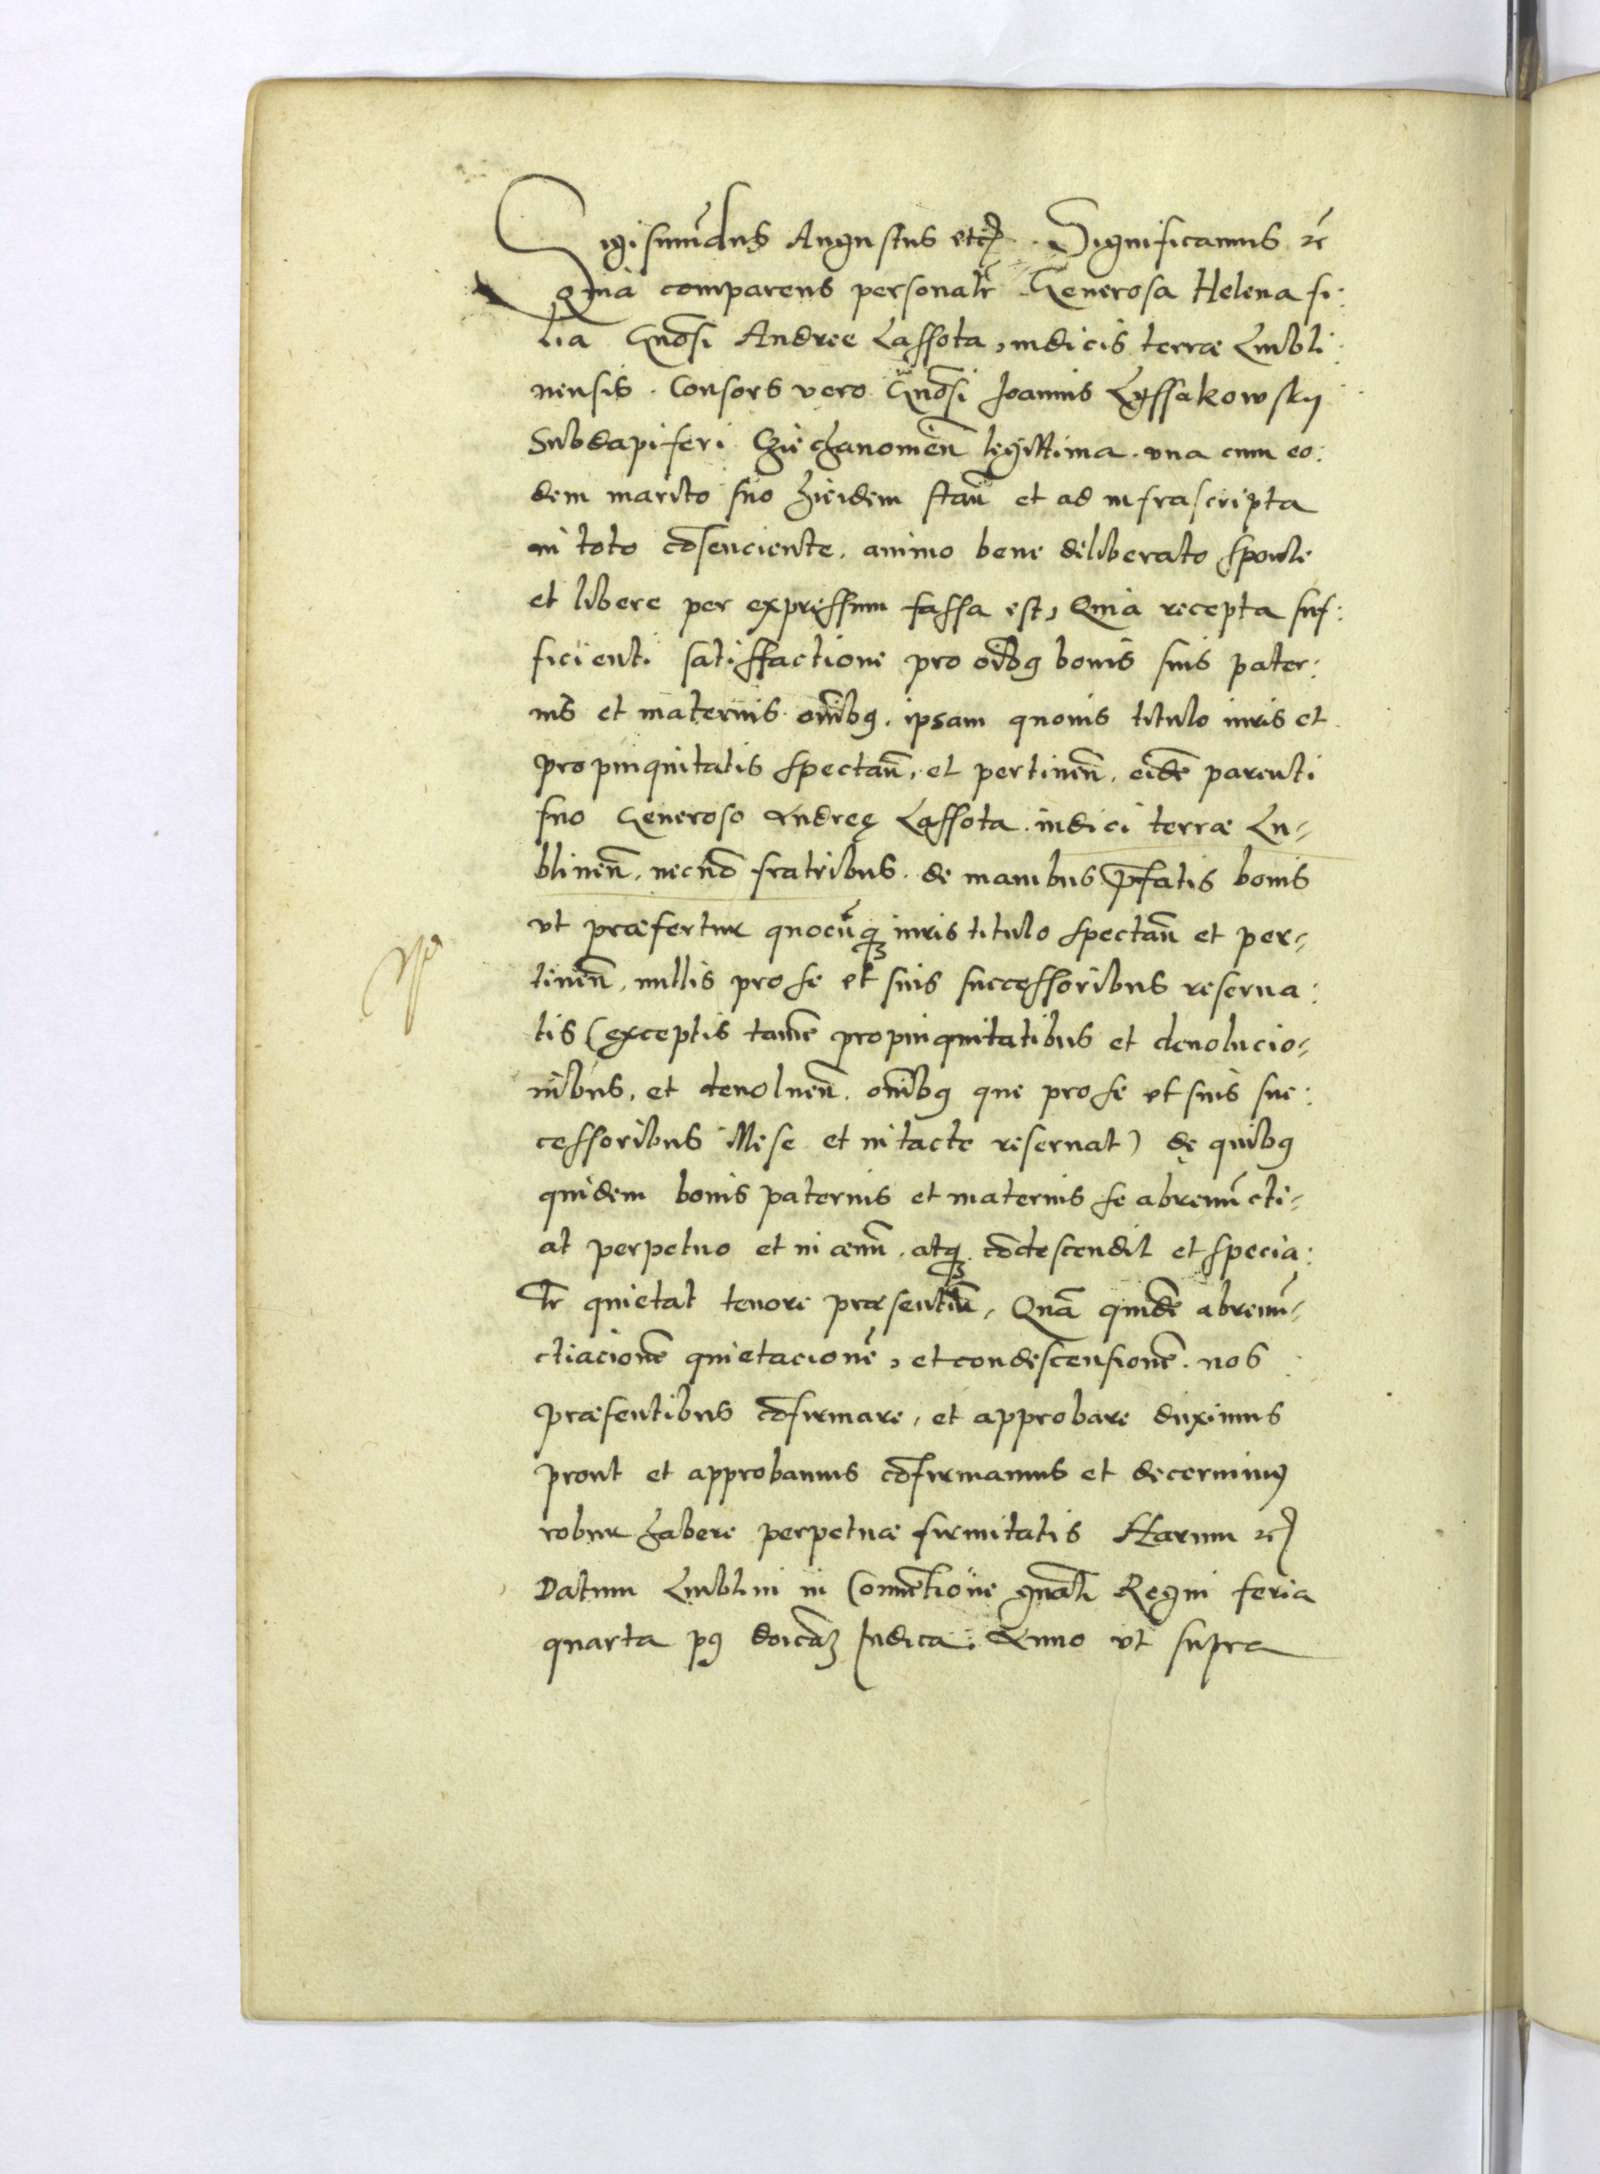 Sigismūdus Augustus etc. Significamus zc̄
Quia comparens personalr̄ Generosa Helena fi:
lia Gnōsi Andree Lassota, iudicis terræ Lubli:
nensis. Consors vero Gnōsi Joannis Lyssakowsky
Subdapiferi Ciechanomien̄ legittima. vna cum eo:
dem marito suo ibidem stan̄ et ad infrascripta
in toto cōsenciente. animo bene deliberato sponte
et libere per expressum fassa est, Quia recepta suf:
ficienti satisffactione pro oībꝰ bonis suis pater:
nis et maternis om̄ibꝰ. ipsam quouis titulo iuris et
propinquitatis spectan̄. et pertinen̄. eidē parenti
suo Generoso Andreę Lassota. iudici terræ Lu=
blinen̄. necnō fratribus. de manibus p̄fatis bonis
vt præfertur quocūqꝫ iuris titulo spectan̄ et per=
tinen̄, nullis pro se et suis successoribus reserua:
tis (exceptis tamē propinquitatibus et deuolucio=
nibus, et deuoluen̄. om̄ibꝰ que pro se et suis suc:
cessoribus illese et intacte reseruat) de quibꝰ
quidem bonis paternis et maternis se abrenūcti=
at perpetuo et in æuū. atqꝫ cōdescendit et specia:
lr̄ quietat tenore præsentiū, Quā quidē abrenū=
ctiacionē quietacionē, et condescensionē. nos
præsentibus cōfirmare, et approbare duximus
prout et approbamus cōfirmamus et decernimꝰ
robur habere perpetuæ firmitatis Harum zc
Datum Lublini in Conuētione gnāli Regni feria
quarta pꝰ dōicāꝫ Judica. Anno vt supra